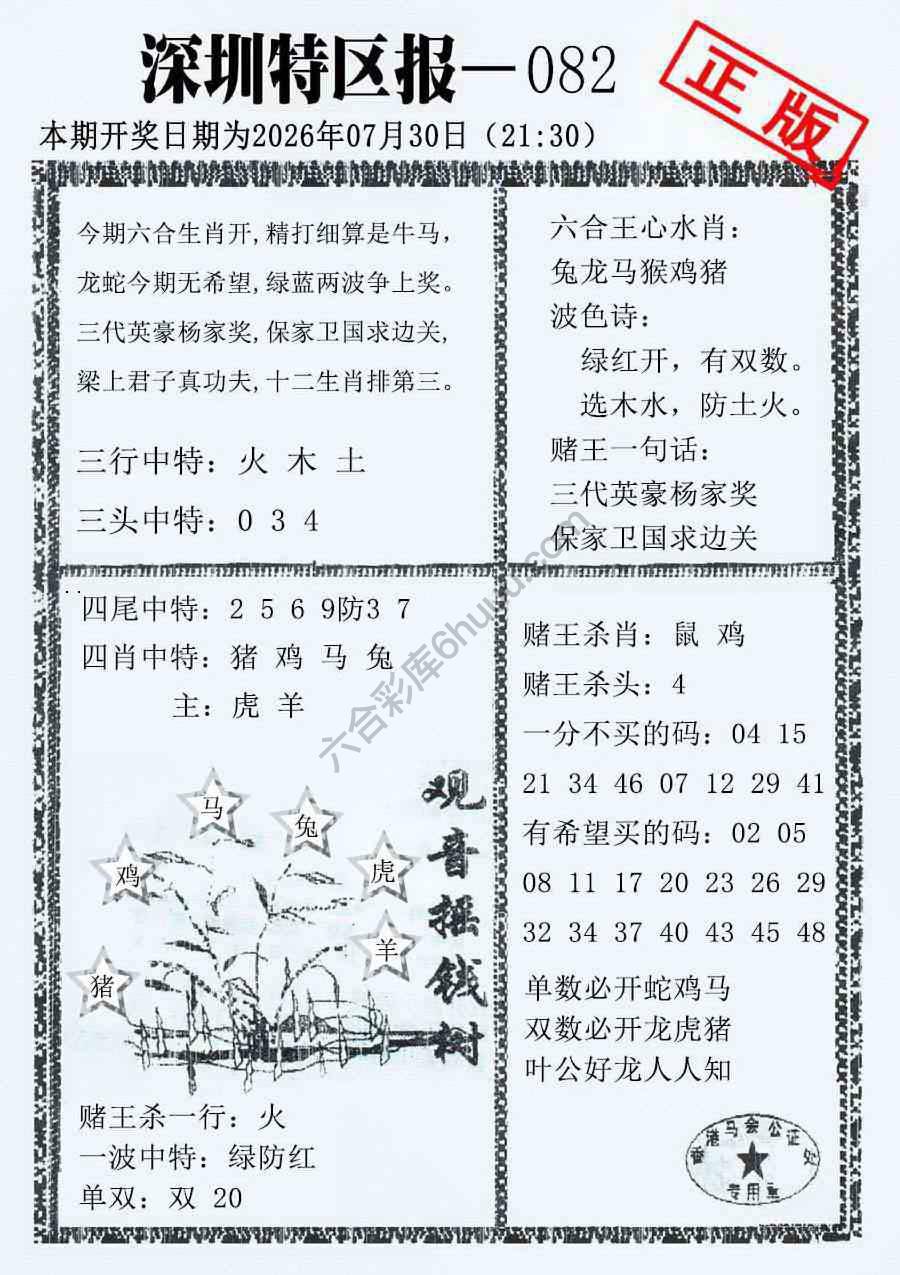 深圳特区报—082
正版
本期开奖日期为2026年07月30日（21:30）
今期六合生肖开,精打细算是牛马，
龙蛇今期无希望,绿蓝两波争上奖。
三代英豪杨家奖,保家卫国求边关,
梁上君子真功夫,十二生肖排第三。
三行中特：火 木 土
三头中特：0 3 4
六合王心水肖：
兔龙马猴鸡猪
波色诗：
绿红开，有双数。
选木水，防土火。
赌王一句话：
三代英豪杨家奖
保家卫国求边关
四尾中特：2 5 6 9防3 7
四肖中特：猪 鸡 马 兔
主：虎 羊
六合彩库6huu.com
马
兔
鸡
虎
羊
猪
观音摇钱树
赌王杀一行：火
一波中特：绿防红
单双：双 20
赌王杀肖：鼠 鸡
赌王杀头：4
一分不买的码：04 15
21 34 46 07 12 29 41
有希望买的码：02 05
08 11 17 20 23 26 29
32 34 37 40 43 45 48
单数必开蛇鸡马
双数必开龙虎猪
叶公好龙人人知
香港马会公证处
专用章